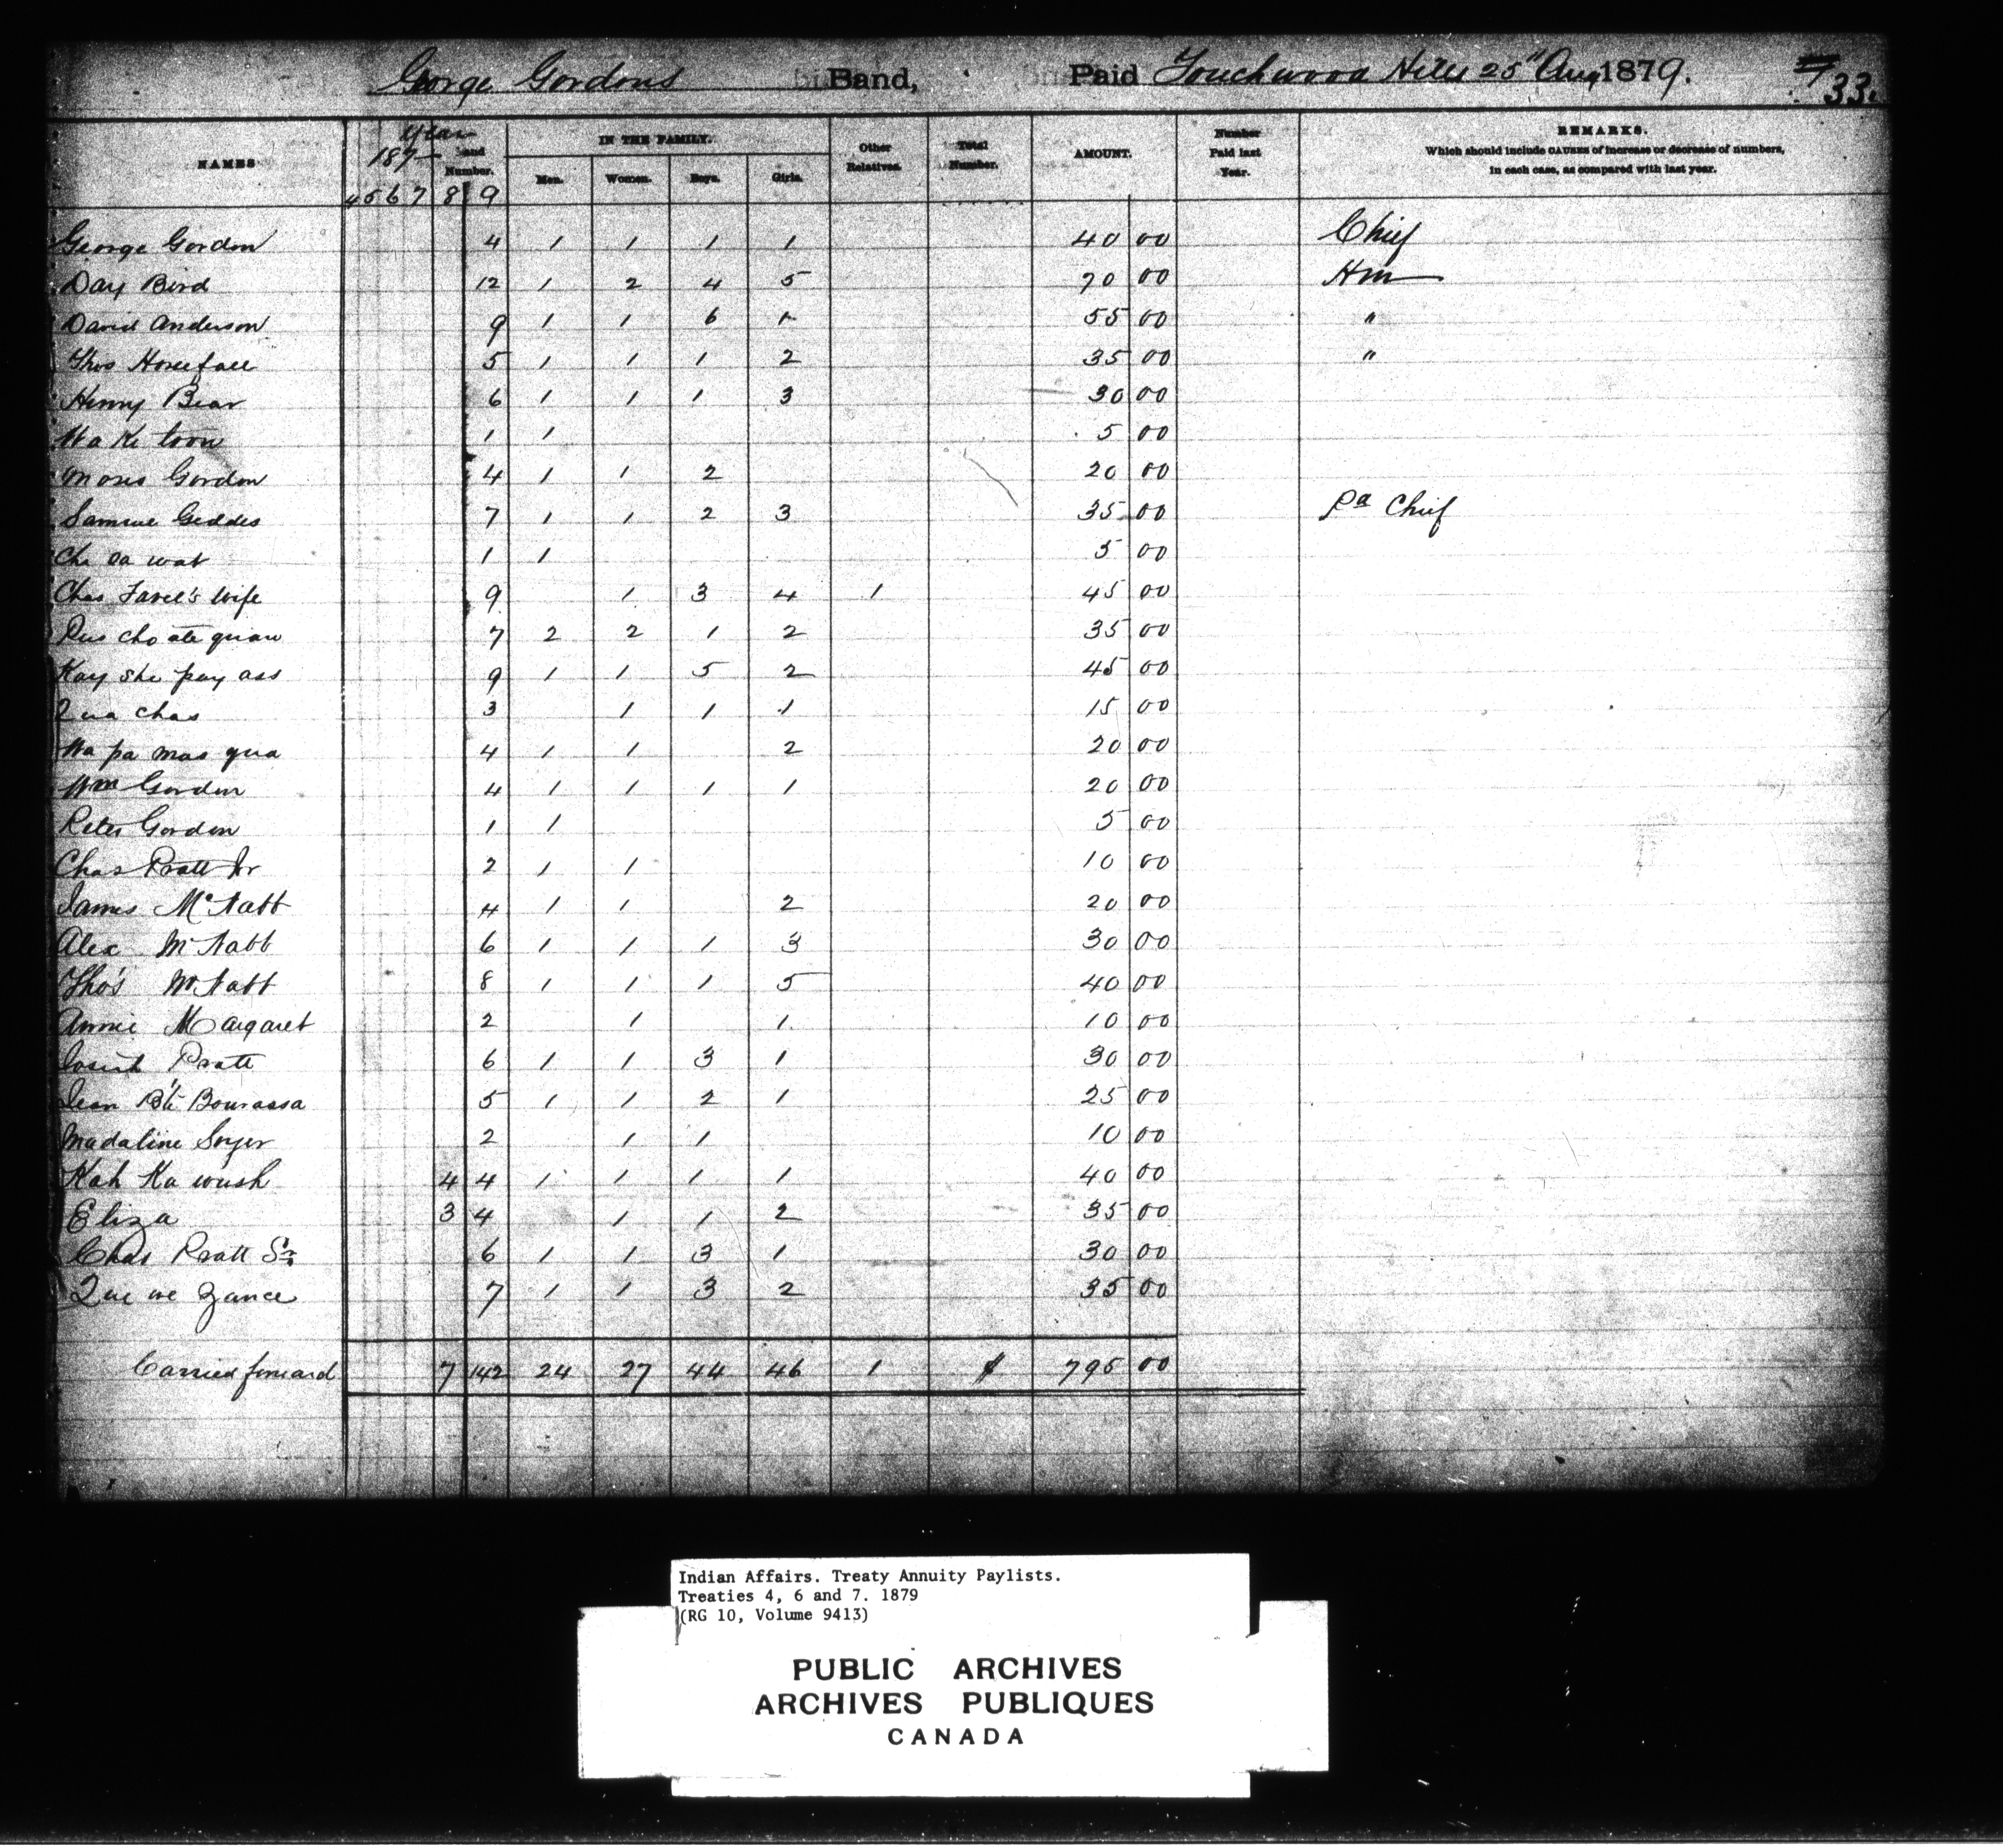 George Gordons Band, Paid Touchwood Hills 25" Aug 1879.
33.
NAMES year 187- and Number. IN THE FAMILY. Other Relatives. Total Number. AMOUNT. Number Paid last Year. REMARKS.
Which should include CAUSES of increase or decrease of numbers, in each case, as compared with last year.
Men. Women. Boys. Girls.
4 5 6 7 8 9
George Gordon 4 1 1 1 1 40 00 Chief
Day Bird 12 1 2 4 5 70 00 Hm
David Anderson 9 1 1 6 1 55 00 "
Thos Horsefall 5 1 1 1 2 35 00 "
Henry Bear 6 1 1 1 3 30 00
Wa Ke toon 1 1 5 00
Moses Gordon 4 1 1 2 20 00
Samuel Geddes 7 1 1 2 3 35 00 Pa Chief
Che ca wat 1 1 5 00
Chas Favel's Wife 9 1 3 4 1 45 00
Pus cho ate quaw 7 2 2 1 2 35 00
Kay she pay ass 9 1 1 5 2 45 00
Qua chas 3 1 1 1 15 00
Wa pa mas qua 4 1 1 2 20 00
Wm Gordon 4 1 1 1 1 20 00
Peter Gordon 1 1 5 00
Chas Pratt Jr 2 1 1 10 00
James McNabb 4 1 1 2 20 00
Alex McNabb 6 1 1 1 3 30 00
Tho's McNabb 8 1 1 1 5 40 00
Annie Margaret 2 1 1 10 00
Josiah Pratt 6 1 1 3 1 30 00
Jean Bte Bourassa 5 1 1 2 1 25 00
Madaline Soyer 2 1 1 10 00
Kah Ka wush 4 4 1 1 1 1 40 00
Eliza 3 4 1 1 2 35 00
Chas Pratt Sr 6 1 1 3 1 30 00
Que we zance 7 1 1 3 2 35 00
Carried forward 7 142 24 27 44 46 1 795 00
Indian Affairs. Treaty Annuity Paylists.
Treaties 4, 6 and 7. 1879
(RG 10, Volume 9413)
PUBLIC ARCHIVES
ARCHIVES PUBLIQUES
CANADA